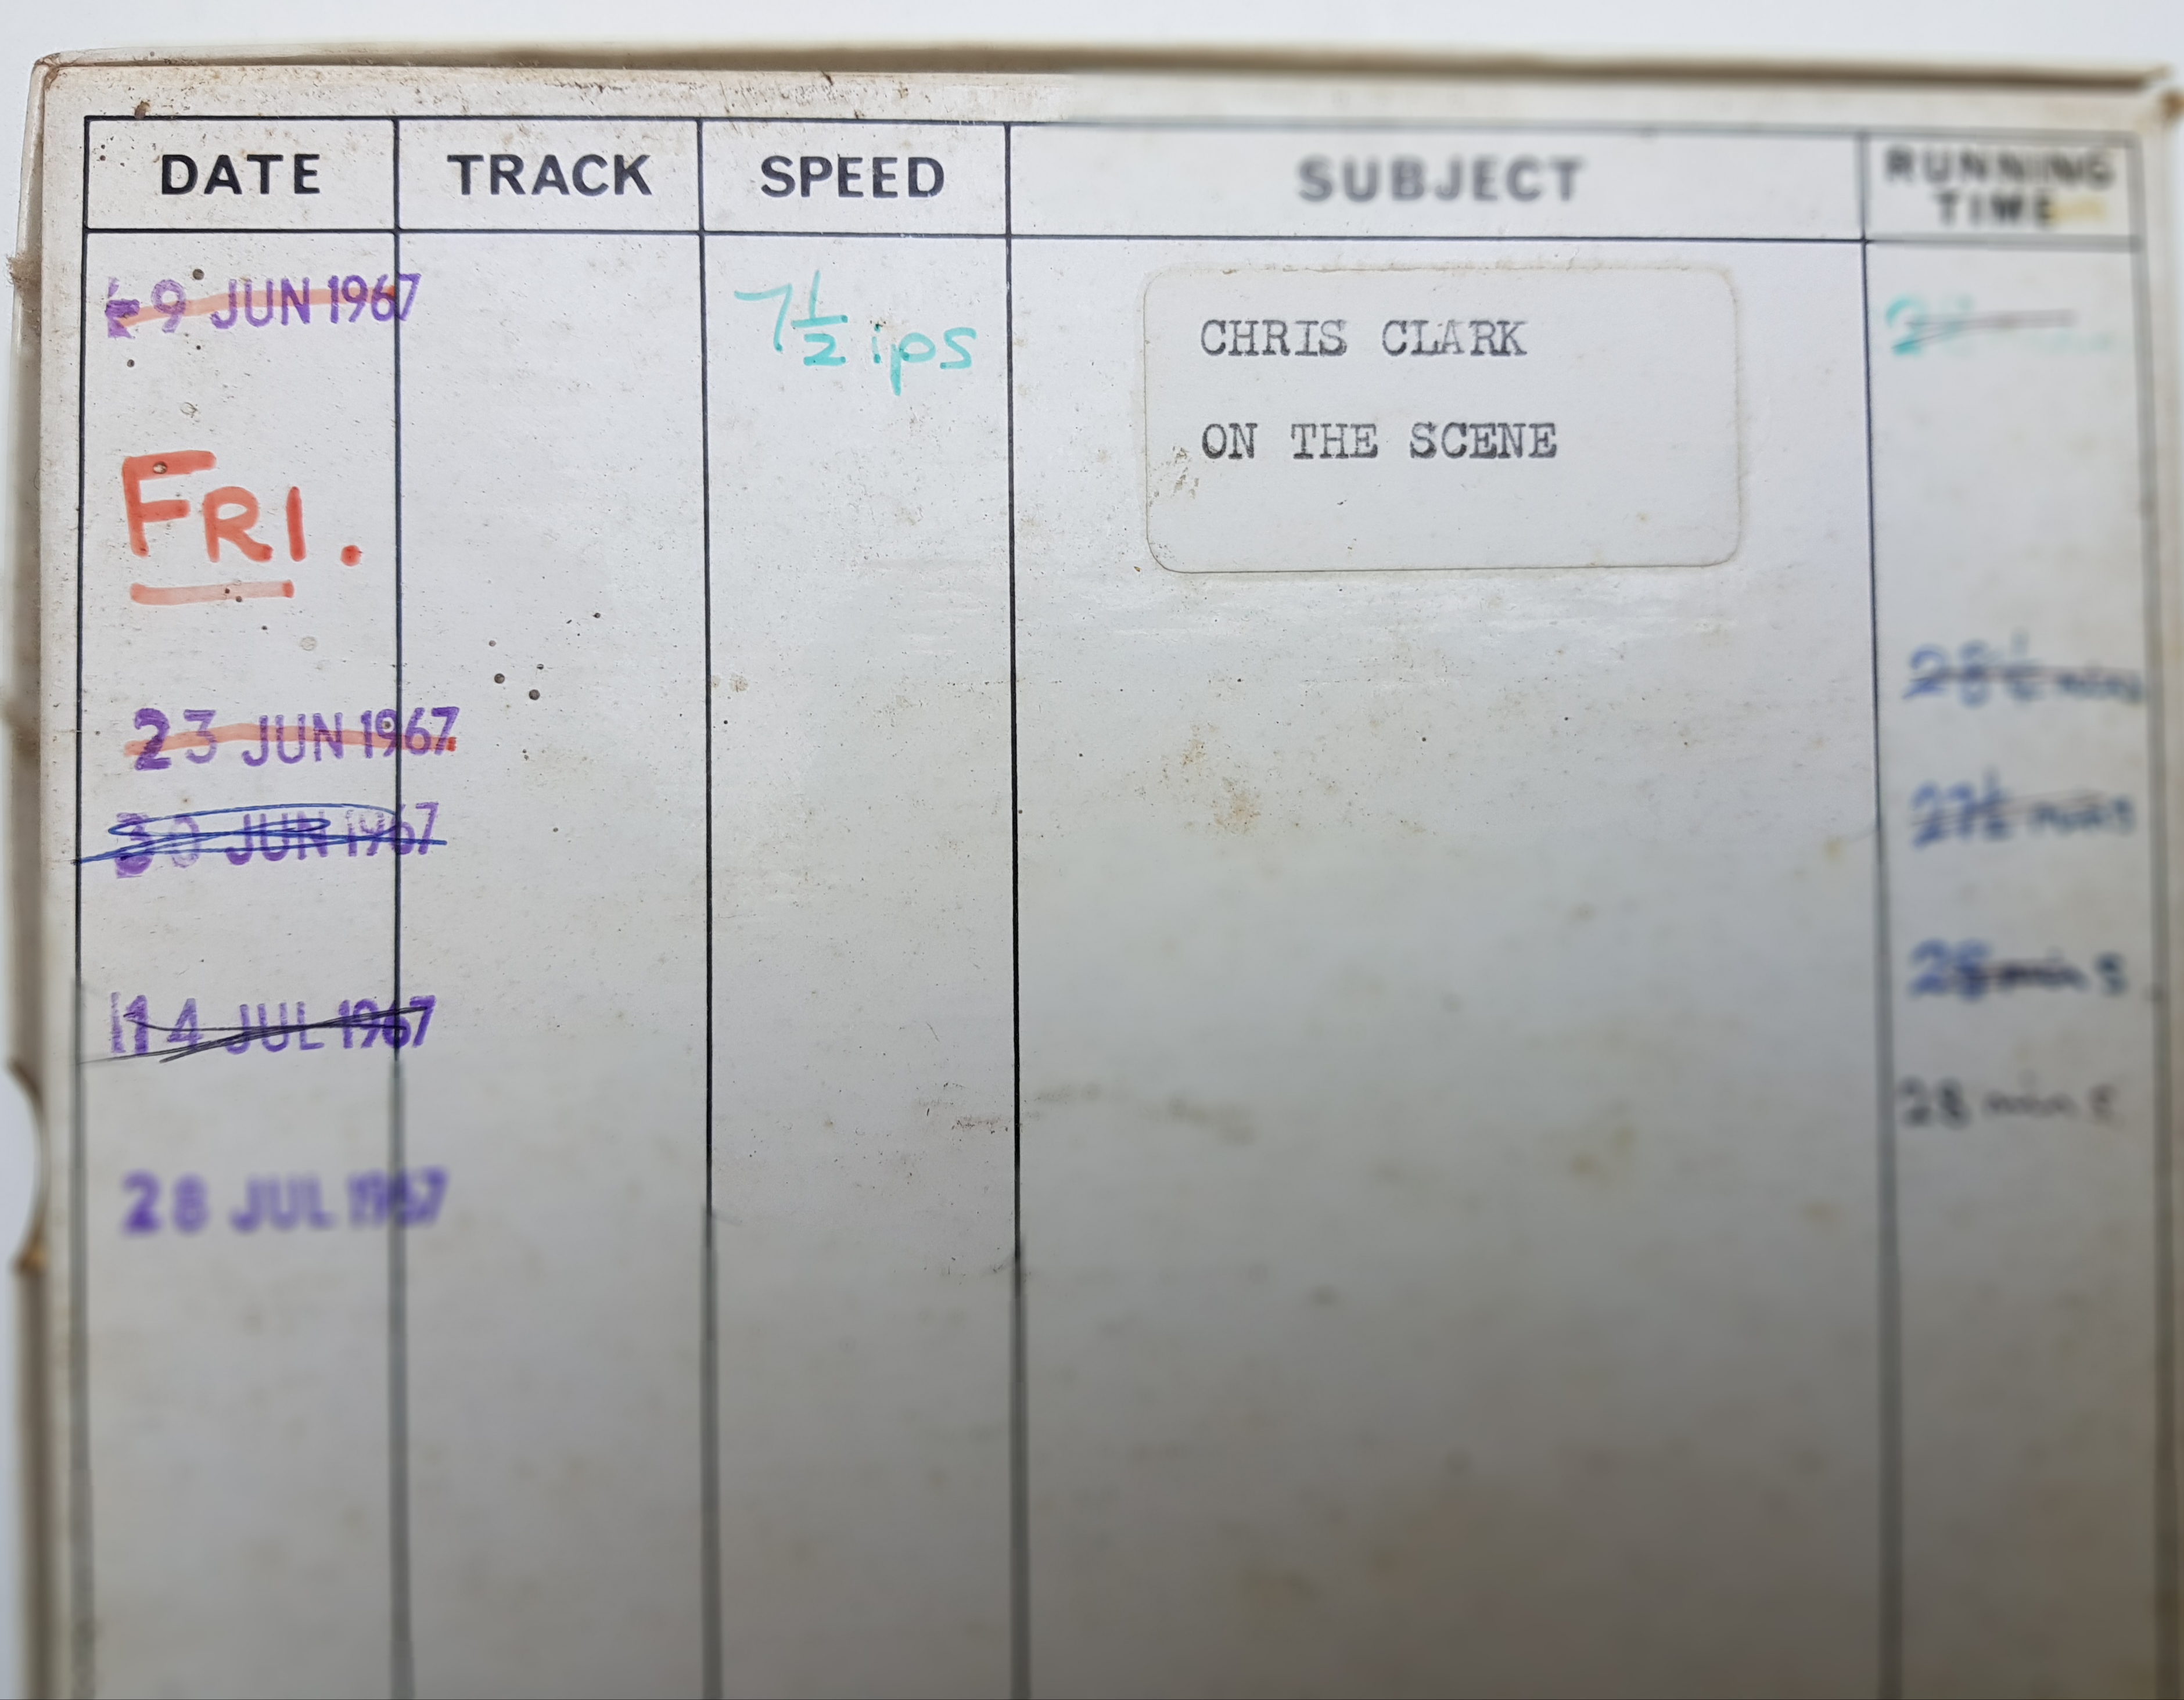 DATE TRACK SPEED SUBJECT RUNNING TIME
9 JUN 1967 7½ ips CHRIS CLARK
ON THE SCENE
FRI.
28½ mins
23 JUN 1967
30 JUN 1967 27½ mins
28 mins
14 JUL 1967
28 mins
28 JUL 1967